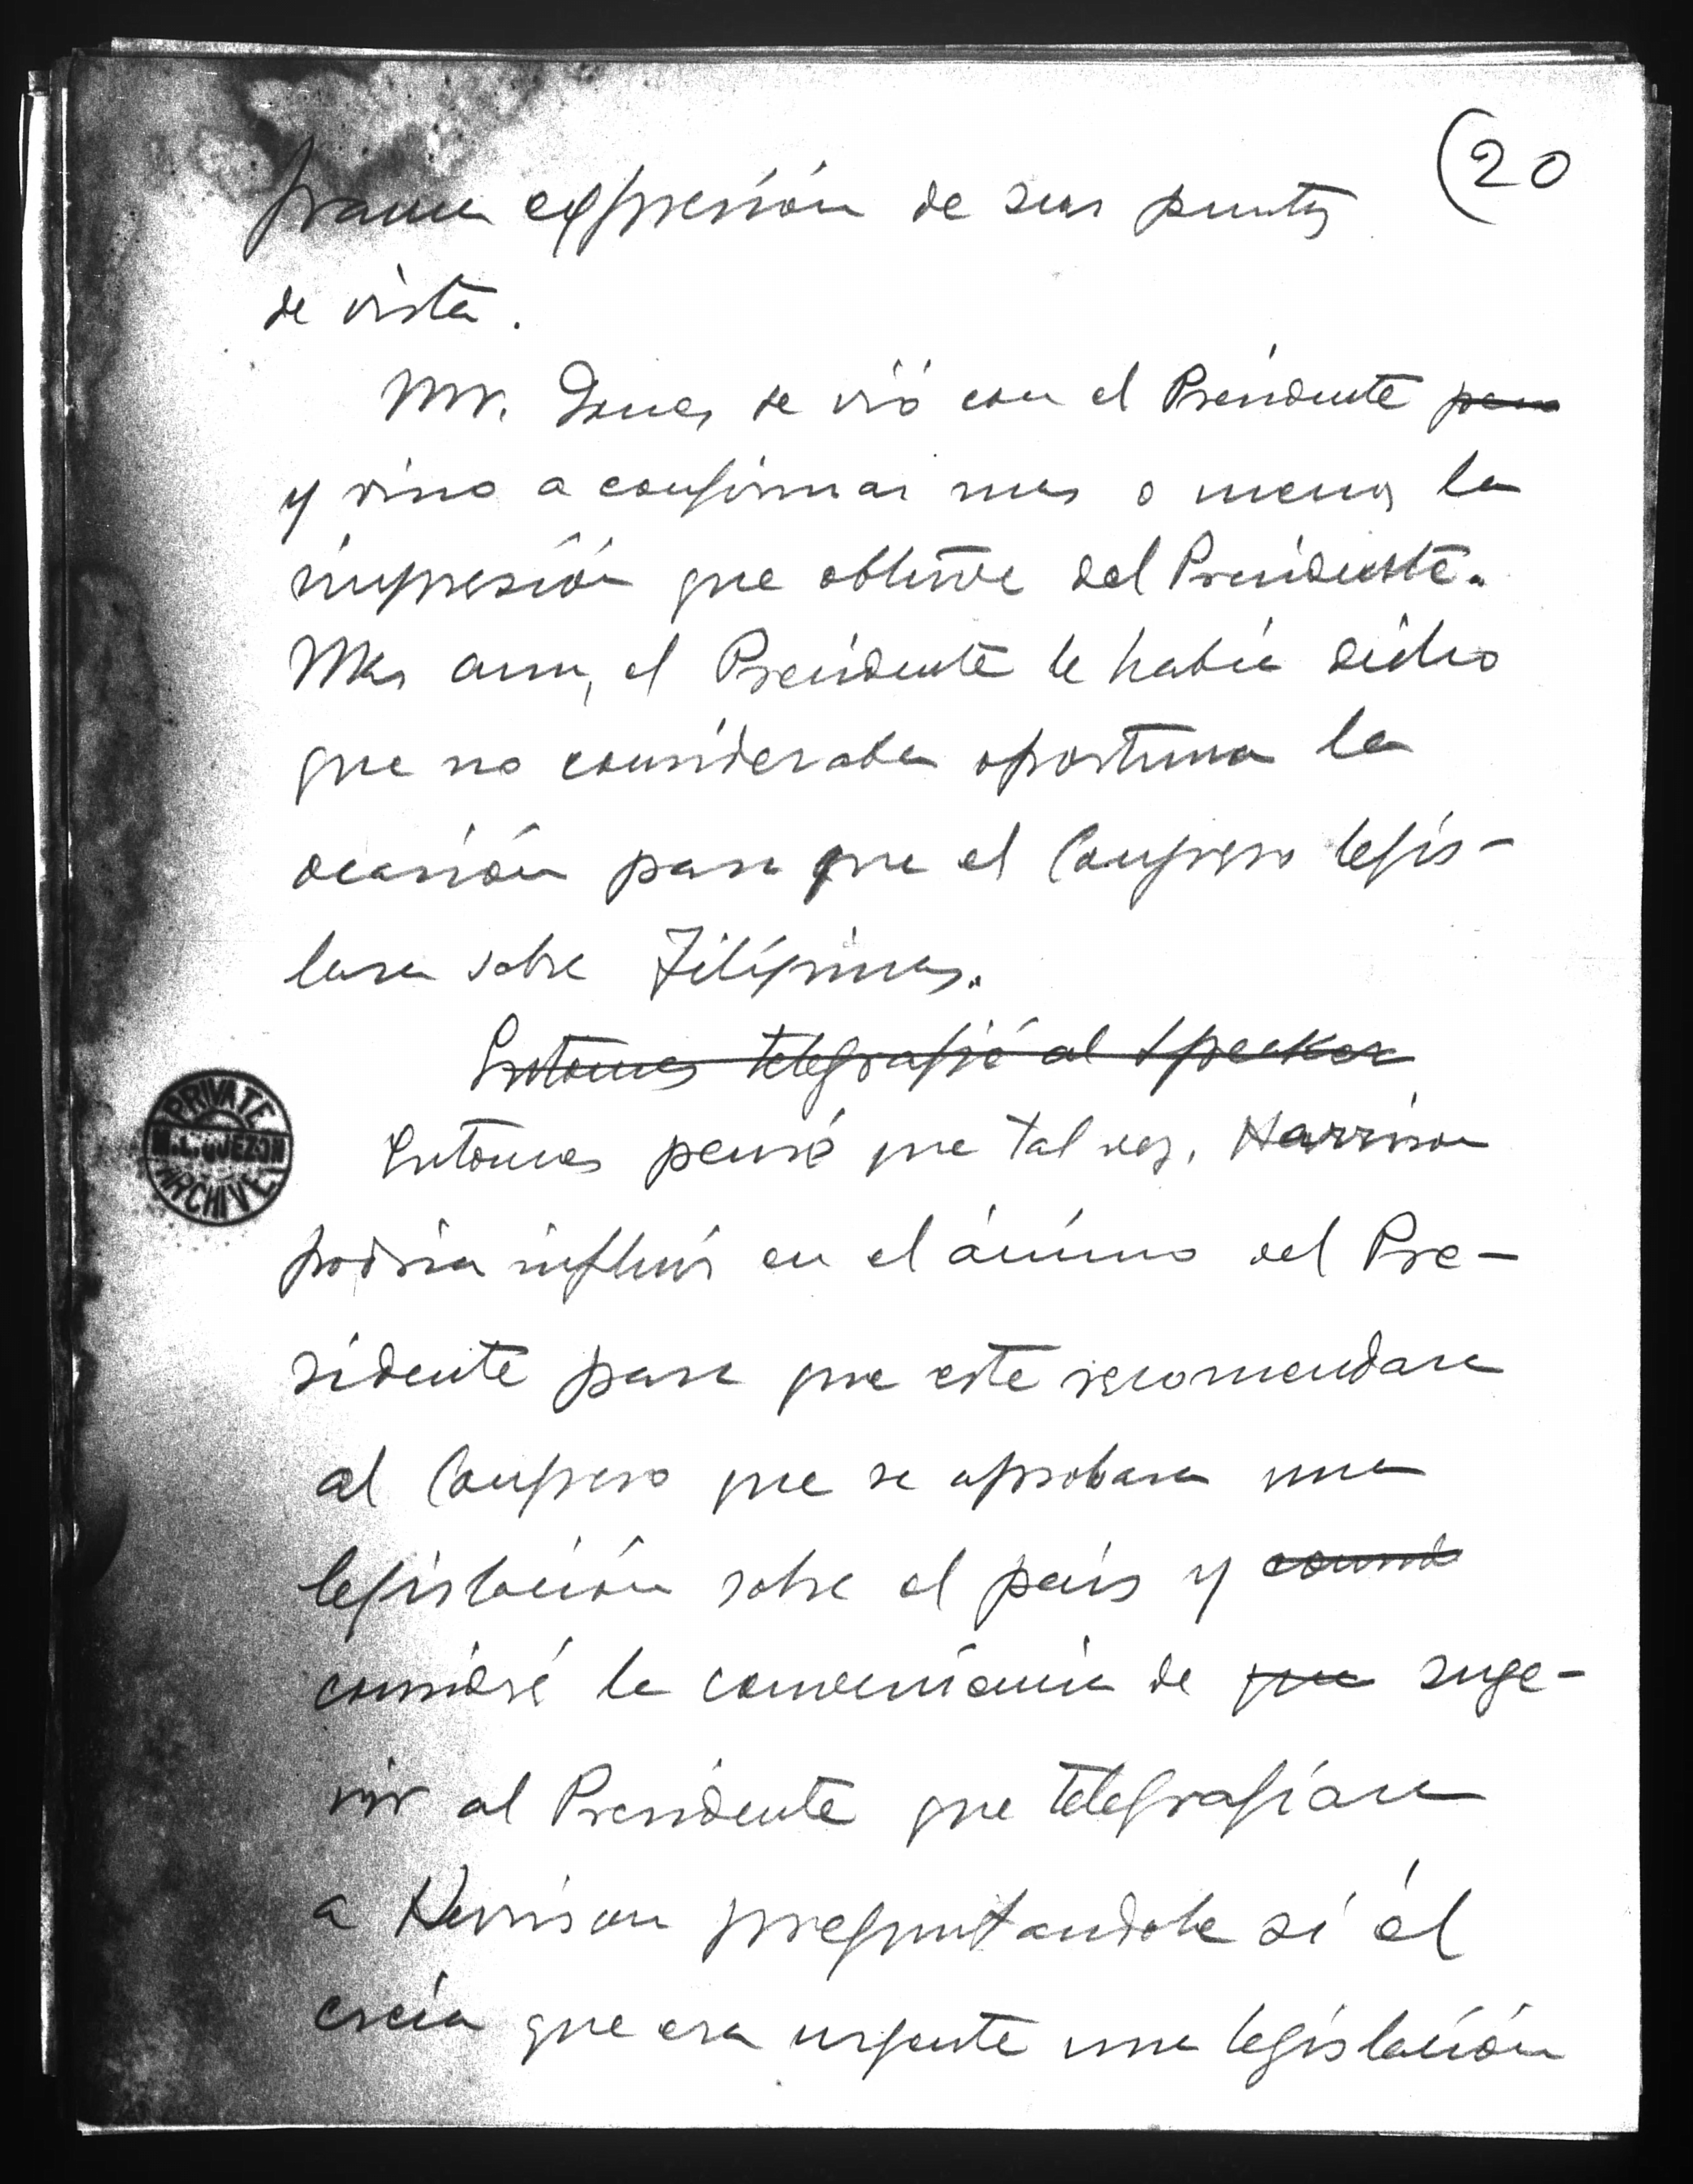 (20
franca expresión de sus puntos
de vista.
Mr. Jones se vió con el Presidente pero
y vino a confirmar mas o menos la
impresión que obtuve del Presidente.
Mas aun, el Presidente le había dicho
que no consideraba oportuna la
ocasión para que el Congreso legis-
lara sobre Filipinas.
Entonces telegrafié al Speaker
Entonces pensé que tal vez, Harrison
podria influir en el ánimo del Pre-
sidente para que este recomendara
al Congreso que se aprobara una
legislación sobre el país y
consideré la conveniencia de que suge-
rir al Presidente que telegrafiara
a Harrison preguntandole si él
creía que era urgente una legislación
PRIVATE
M.L. QUEZON
ARCHIVE